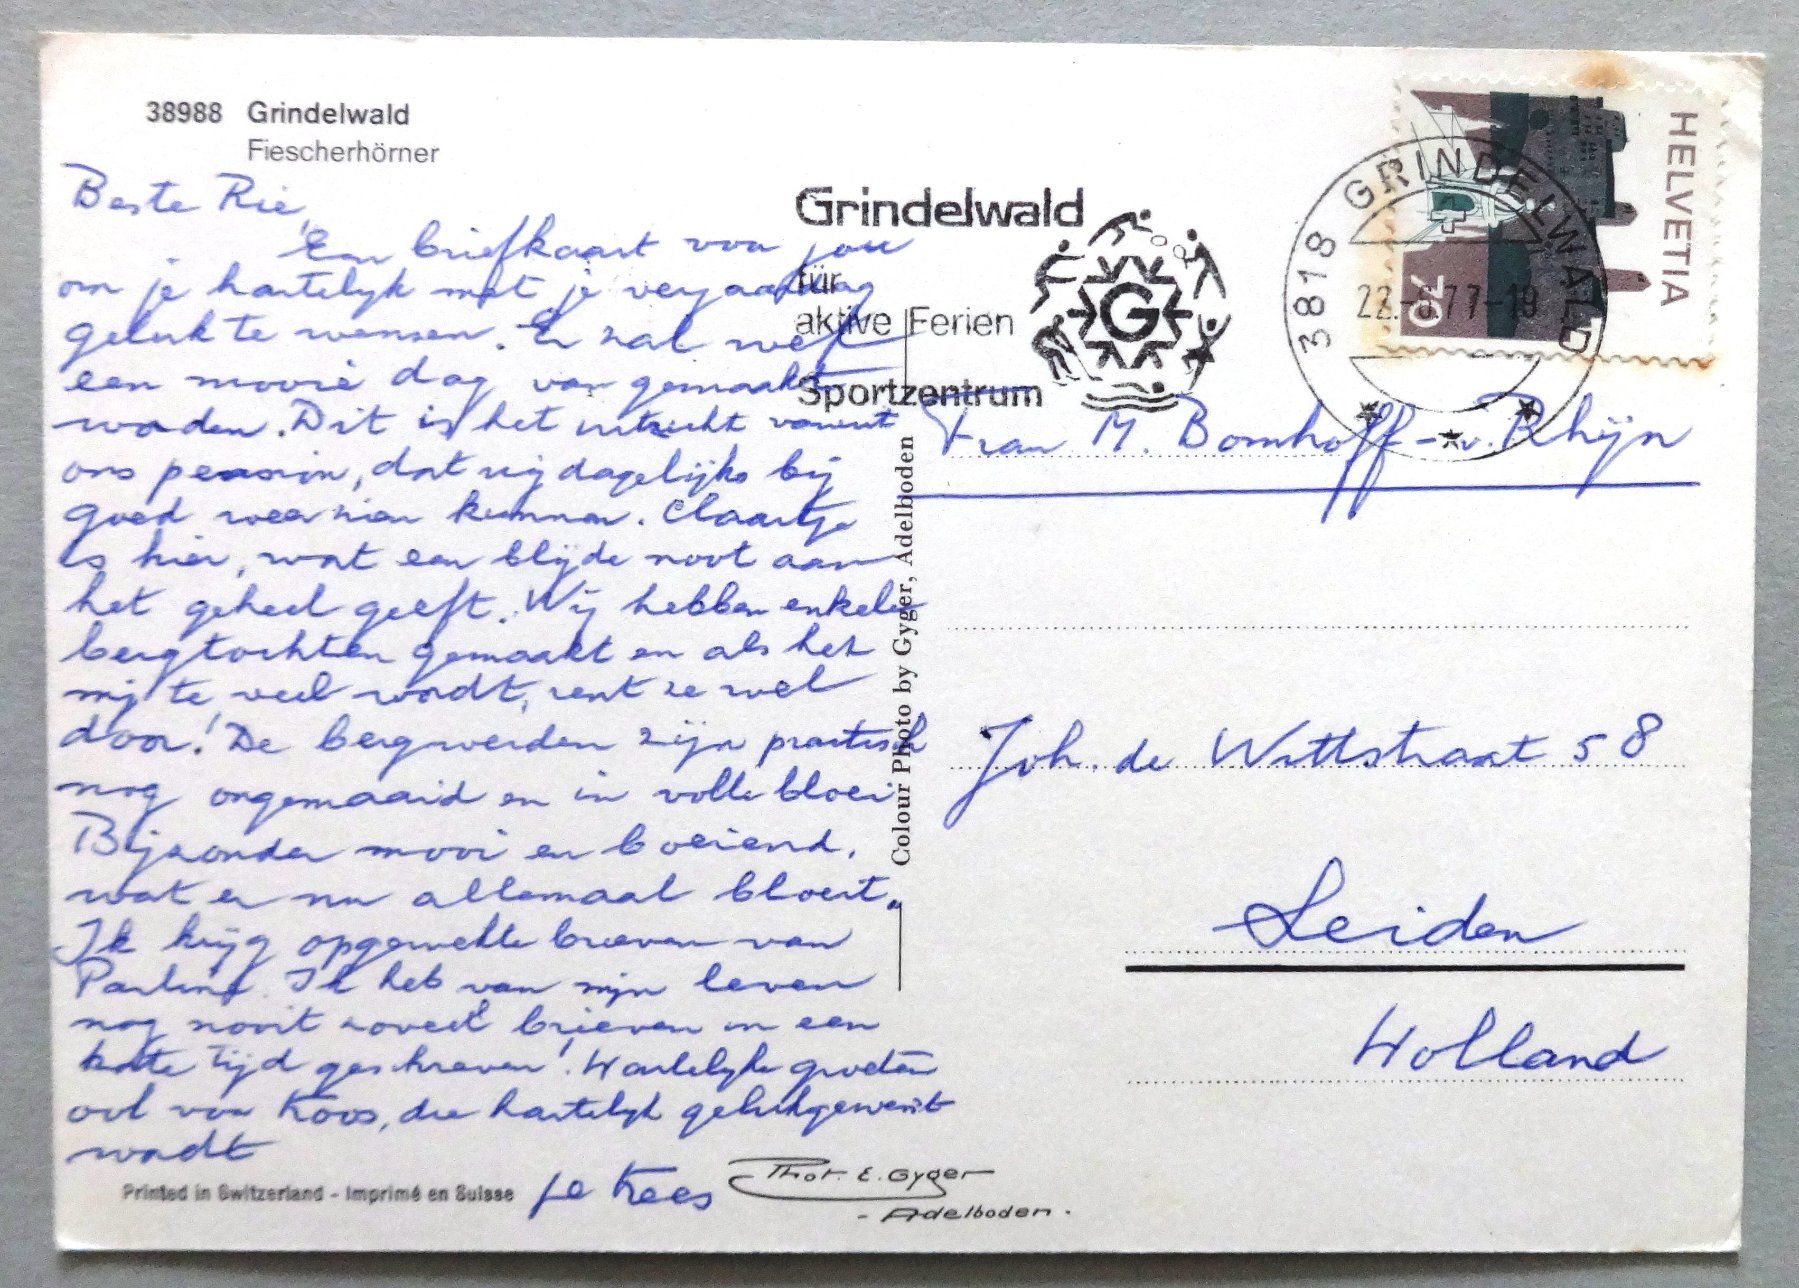 38988 Grindelwald
Fiescherhörner
Beste Rie,
Een briefkaart voor jou
om je hartelijk met je verjaardag
geluk te wensen. Er zal wel
een mooie dag van gemaakt
worden. Dit is het uitzicht vanuit
ons pension, dat wij dagelijks bij
goed weer zien kunnen. Claartje
is hier, wat een blijde noot aan
het geheel geeft. Wij hebben enkele
bergtochten gemaakt en als het
mij te veel wordt, rent ze wel
door! De bergweiden zijn practisch
nog ongemaaid en in volle bloei
Bijzonder mooi en boeiend,
wat er nu allemaal bloeit.
Ik krijg opgewekte brieven van
Pauline. Ik heb van mijn leven
nog nooit zoveel brieven in een
korte tijd geschreven! Hartelijke groeten
ook voor Koos, die hartelijk gelukgewenst
wordt
je Kees
Printed in Switzerland - Imprimé en Suisse
Phot. E. Gyger
- Adelboden.
Colour Photo by Gyger, Adelboden
Grindelwald
für
aktive Ferien
Sportzentrum
G
3818 GRINDELWALD
22.-6.77-19
HELVETIA
70
Frau M. Bomhoff-v. Rhijn
Joh. de Wittstraat 58
Leiden
Holland